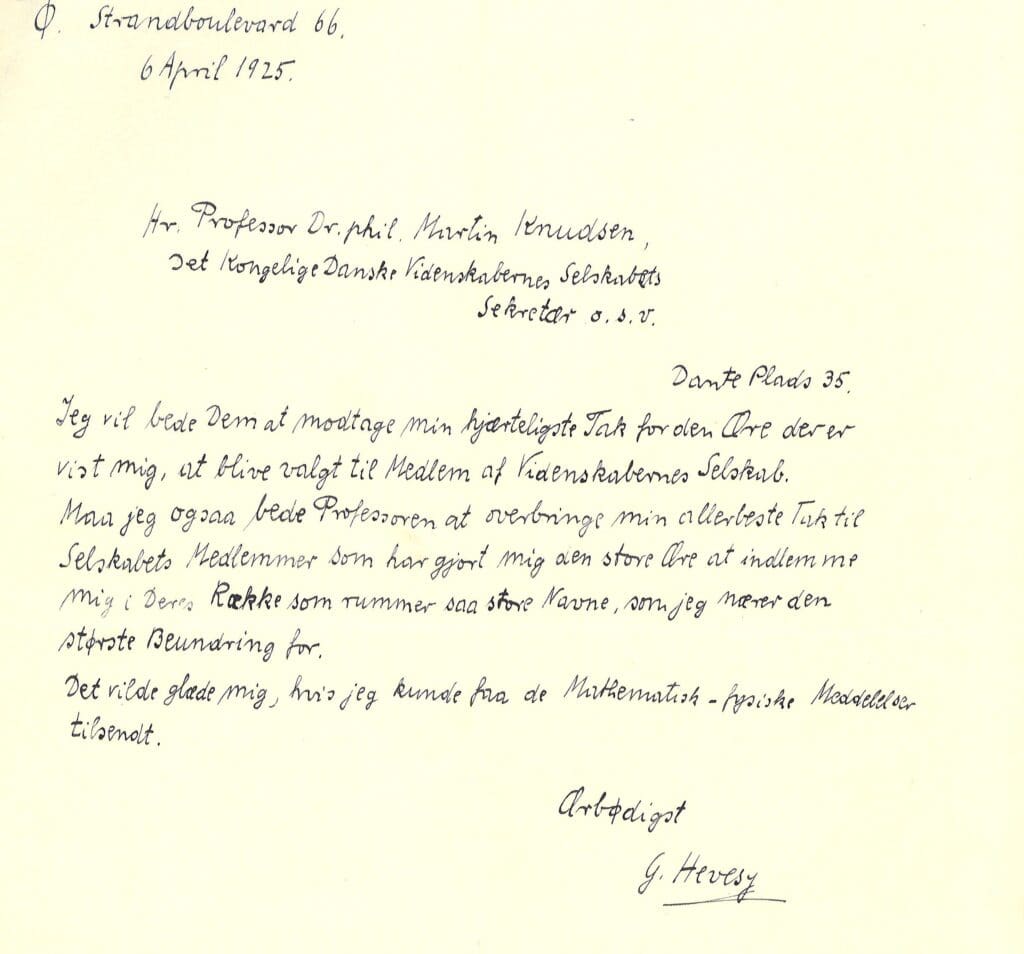 Ø. Strandboulevard 66.
6 April 1925.
Hr. Professor Dr. phil. Martin Knudsen,
Det Kongelige Danske Videnskabernes Selskabets
Sekretær o.s.v.
Dante Plads 35.
Jeg vil bede Dem at modtage min hjærteligste Tak for den Ære der er
vist mig, at blive valgt til Medlem af Videnskabernes Selskab.
Maa jeg ogsaa bede Professoren at overbringe min allerbeste Tak til
Selskabets Medlemmer som har gjort mig den store Ære at indlemme
mig i Deres Række som rummer saa store Navne, som jeg nærer den
største Beundring for.
Det vilde glæde mig, hvis jeg kunde faa de Mathematisk-fysiske Meddelelser
tilsendt.
Ærbødigst
G. Hevesy